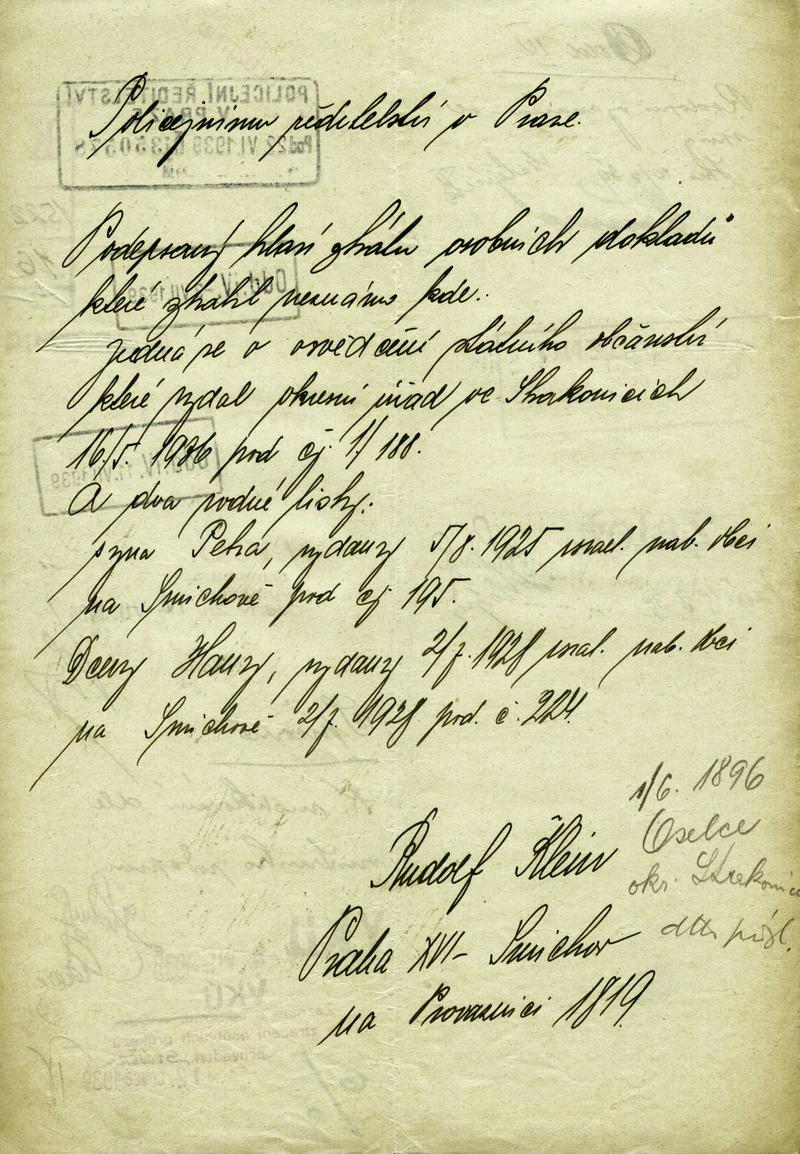 Policejnímu ředitelství v Praze.
Podepsaný hlásí ztrátu osobních dokladů
které ztratil neznámo kde.
Jedná se o osvědčení státního občanství
které vydal okresní úřad ve Strakonicích
16/5. 1936 pod čj. 1/188.
A dva rodné listy.
syna Petra, vydaný 5/8. 1925 israel. nab. obcí
na Smíchově pod čj 195.
Dcery Hany, vydaný 2/7. 1928 israel. nab. obcí
na Smíchově 2/7. 1928 pod. č. 224.
Rudolf Klein
Praha XVI - Smíchov
na Provaznici 1819.
1/6. 1896
Oselce
okr. Strakonice
dtto přísl.
POLICEJNÍ ŘEDITELSTVÍ
V PRAZE
22 VI. 1939
Odd. IV.
VII. 1939
Odd. IV.
1939
VKÚ